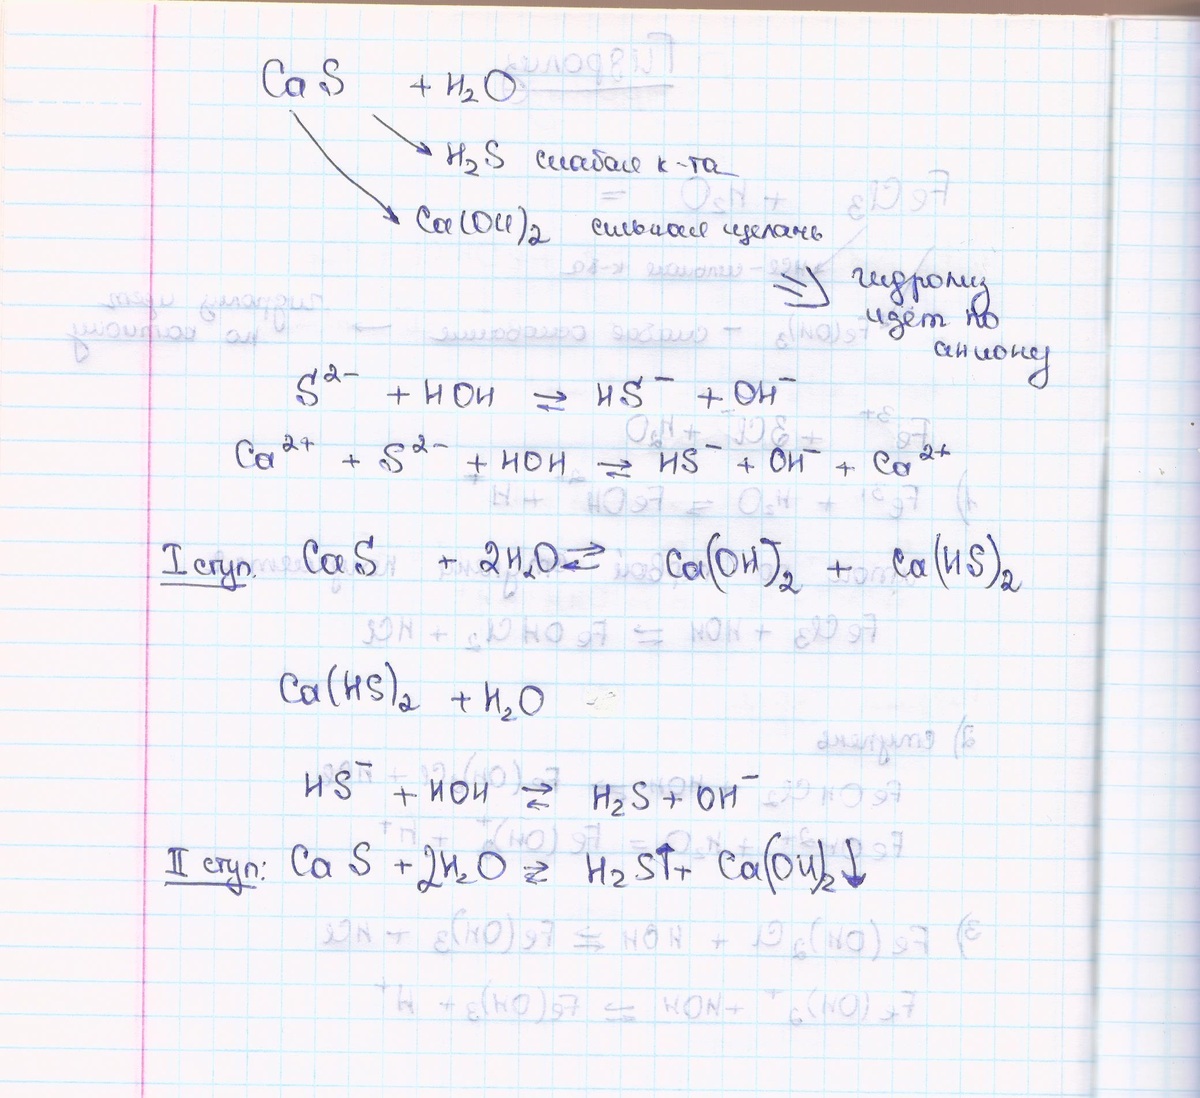 CaS + H₂O
H₂S слабая к-та
Ca(OH)₂ сильная щелочь
⇒ гидролиз
идёт по
аниону
S²⁻ + HOH ⇌ HS⁻ + OH⁻
Ca²⁺ + S²⁻ + HOH ⇌ HS⁻ + OH⁻ + Ca²⁺
I ступ. CaS + 2H₂O ⇌ Ca(OH)₂ + Ca(HS)₂
Ca(HS)₂ + H₂O
HS⁻ + HOH ⇌ H₂S + OH⁻
II ступ: CaS + 2H₂O ⇌ H₂S↑ + Ca(OH)₂↓